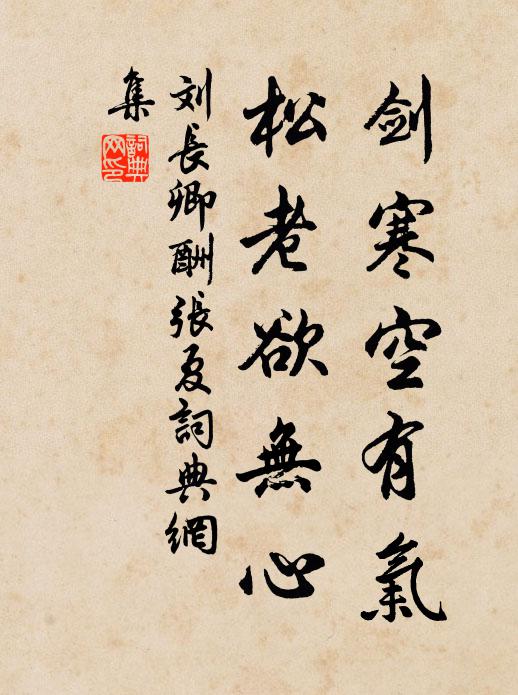 剑寒空有氣
松老欲無心
刘長卿酬張夏詞典網
集
詞典
网印